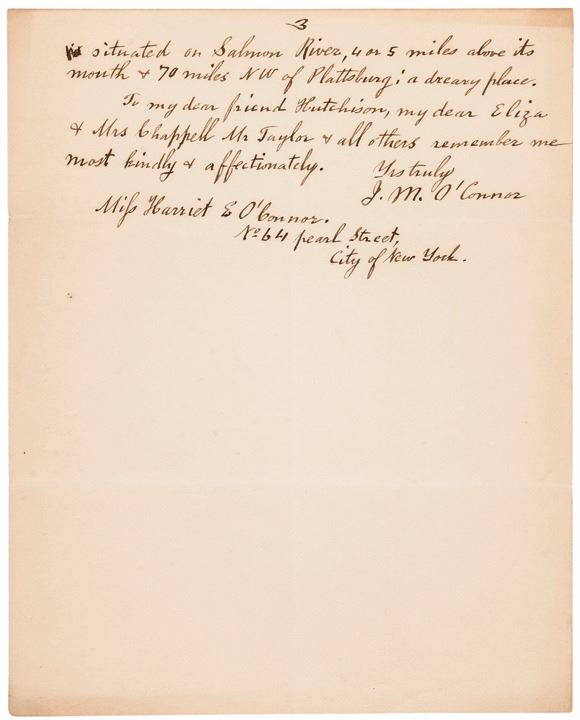 3
is situated on Salmon River, 4 or 5 miles above its
mouth & 70 miles NW of Plattsburg; a dreary place.
To my dear friend Hutchison, my dear Eliza
& Mrs Chappell Mr Taylor & all others remember me
most kindly & affectionately.
Yrs truly
J. M. O'Connor
Miſs Harriet E O'Connor.
No 64 pearl Street,
City of New York.